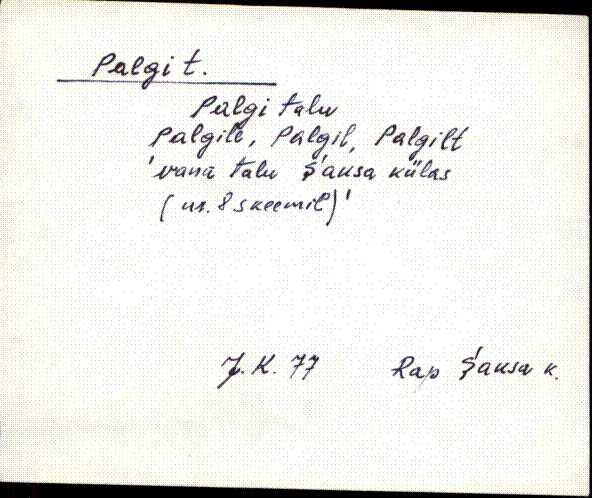 Palgi t.
Palgi talu
Palgile, Palgil, Palgilt
'vana talu Ṣ́aksa külas
(nr. 8 skeemil)'
J. K. 77 Rap Ṣ́aksa k.